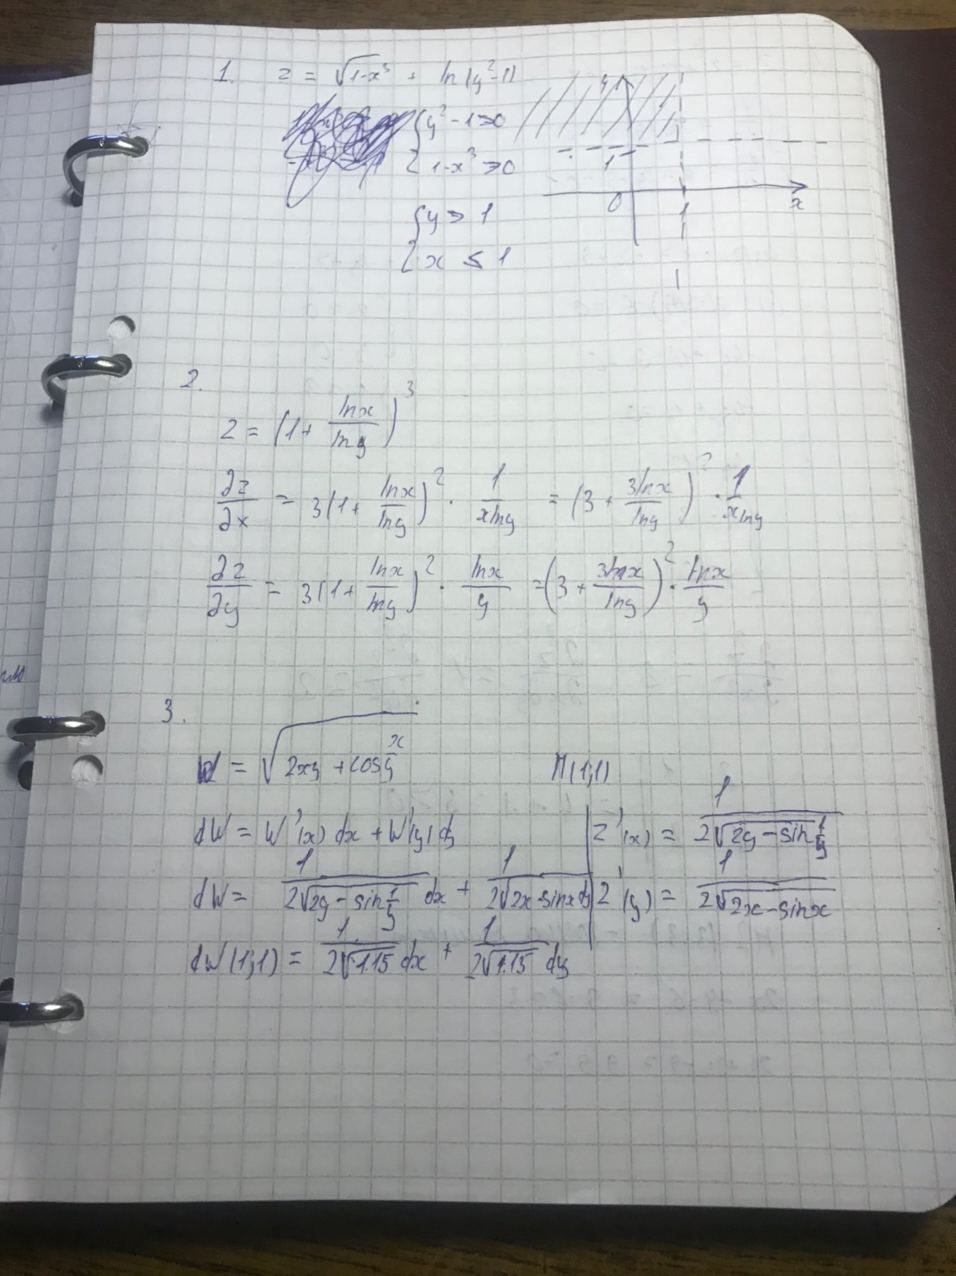 1. z = √1-x³ + ln(y²-1)
{ y² - 1 > 0
1-x³ ⩾ 0
{ y > 1
x ≤ 1
y
1
0
1
x
2.
z = (1 + lnx/lny)³
∂z/∂x = 3(1+ lnx/lny)² · 1/xlny = (3 + 3lnx/lny)² · 1/xlny
∂z/∂y = 3(1+ lnx/lny)² · lnx/y = (3 + 3lnx/lny)² · lnx/y
3.
W = √2xy + cos x/y M(1;1)
dW = W'(x) dx + W'(y) dy
z'(x) = 1/2√2y - sin 1/y
dW = 1/2√2y - sin 1/y dx + 1/2√2x - sinx dy
z'(y) = 1/2√2x - sinx
dW(1;1) = 1/2√1.15 dx + 1/2√1.15 dy